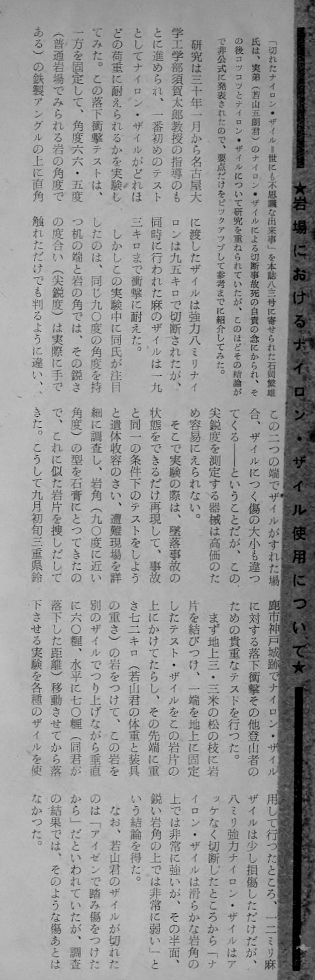 ★岩場におけるナイロン・ザイル使用について★
「切れたナイロン・ザイル＝世にも不思議な出来事」を本誌八三号に寄せられた石岡繁雄
氏は、実弟（若山五朗君）のナイロン・ザイルによる切断事故死の自責の念にかられ、そ
の後コツコツとナイロン・ザイルについて研究を重ねられていたが、このほどその結論が
で非公式に発表されたので、要点だけをピックアップして参考までに紹介してみた。
研究は三十年一月から名古屋大
学工学部須賀太郎教授の指導のも
とに進められ、一番初めのテスト
としてナイロン・ザイルがどれほ
どの荷重に耐えられるかを実験し
てみた。この落下衝撃テストは、
一方を固定して、角度六六・五度
（普通岩場でみられる岩の角度で
ある）の鉄製アングルの上に直角
に渡したザイルは強力八ミリナイ
ロンは九五キロで切断されたが、
同時に行われた麻のザイルは一九
三キロまで衝撃に耐えた。
しかしこの実験中に同氏が注目
したのは、同じ九〇度の角度を持
つ机の端と岩の角では、その鋭さ
の度合い（尖鋭度）は実際に手で
触れただけでも判るように違い、
この二つの端でザイルがすれた場
合、ザイルにつく傷の大小も違つ
てくる――ということだが、この
尖鋭度を測定する器械は高価のた
め容易にえられない。
そこで実験の際は、墜落事故の
状態をできるだけ再現して、事故
と同一の条件下のテストをしよう
と遺体収容のさい、遭難現場を詳
細に調査し、岩角（九〇度に近い
角度）の型を石膏にとつてきたの
で、これに似た岩片を捜しだして
きた。こうして九月初旬三重県鈴
鹿市神戸城跡でナイロン・ザイル
に対する落下衝撃その他登山者の
ための貴重なテストを行つた。
まず地上三・三米の松の枝に岩
片を結びつけ、一端を地上に固定
したテスト・ザイルをこの岩片の
上にかけてたらし、その先端に重
さ七二キロ（若山君の体重と装具
の重さ）の岩をつけて、この岩を
別のザイルでつり上げながら垂直
に六〇糎、水平に七〇糎（同君が
落下した距離）移動させてから落
下させる実験を各種のザイルを使
用して行つたところ、一二ミリ麻
ザイルは少し損傷しただけだが、
八ミリ強力ナイロン・ザイルはア
ッケなく切断したところから「ナ
イロン・ザイルは滑らかな岩角の
上では非常に強いが、その半面、
鋭い岩角の上では非常に弱い」と
いう結論を得た。
なお、若山君のザイルが切れた
のは「アイゼンで踏み傷をつけた
から」だといわれていたが、調査
の結果では、そのような傷あとは
なかつた。